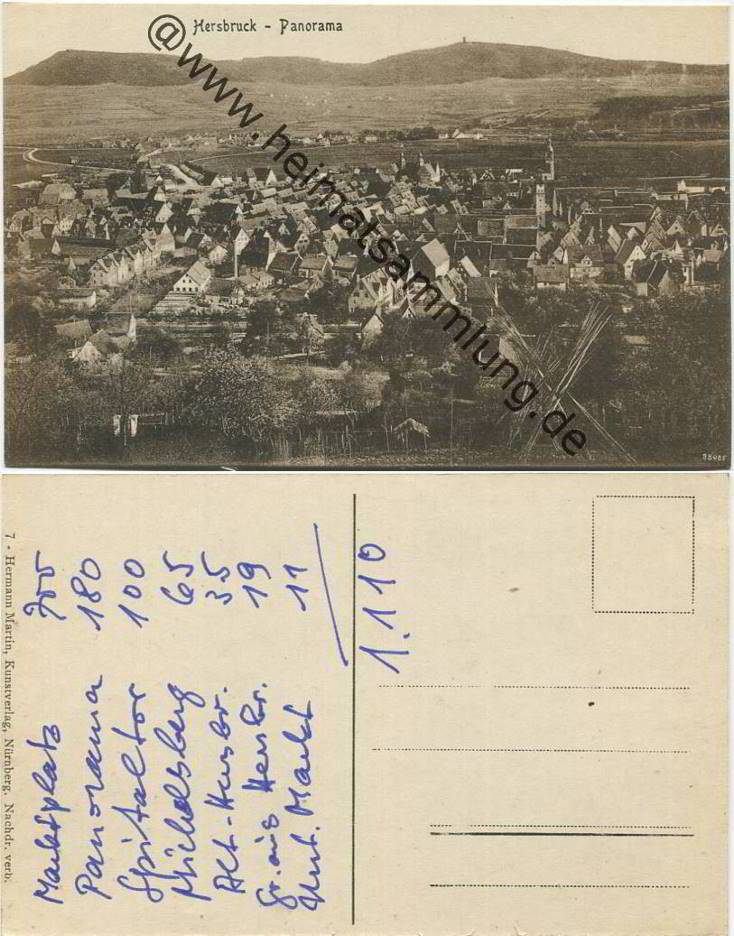 Hersbruck - Panorama
@www.heimatsammlung.de
7 - Hermann Martin, Kunstverlag, Nürnberg. Nachdr. verb.
Marktplatz 700
Panorama 180
Spitaltor 100
Michelsberg 65
Alt-Hersbr. 35
Gr. aus Hersbr. 19
Unt. Markt 11
1.110